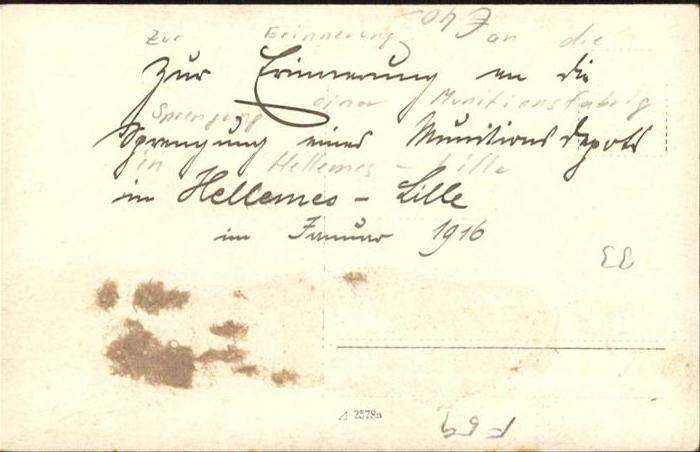 Zur Erinnerung an die
Zur Erinnerung an die
Sprengung einer Munitionsfabrig
Sprengung eines Munitionsdepots
in Hellemes - Lille
in Hellemes - Lille
im Januar 1916
EE
2578a
F59